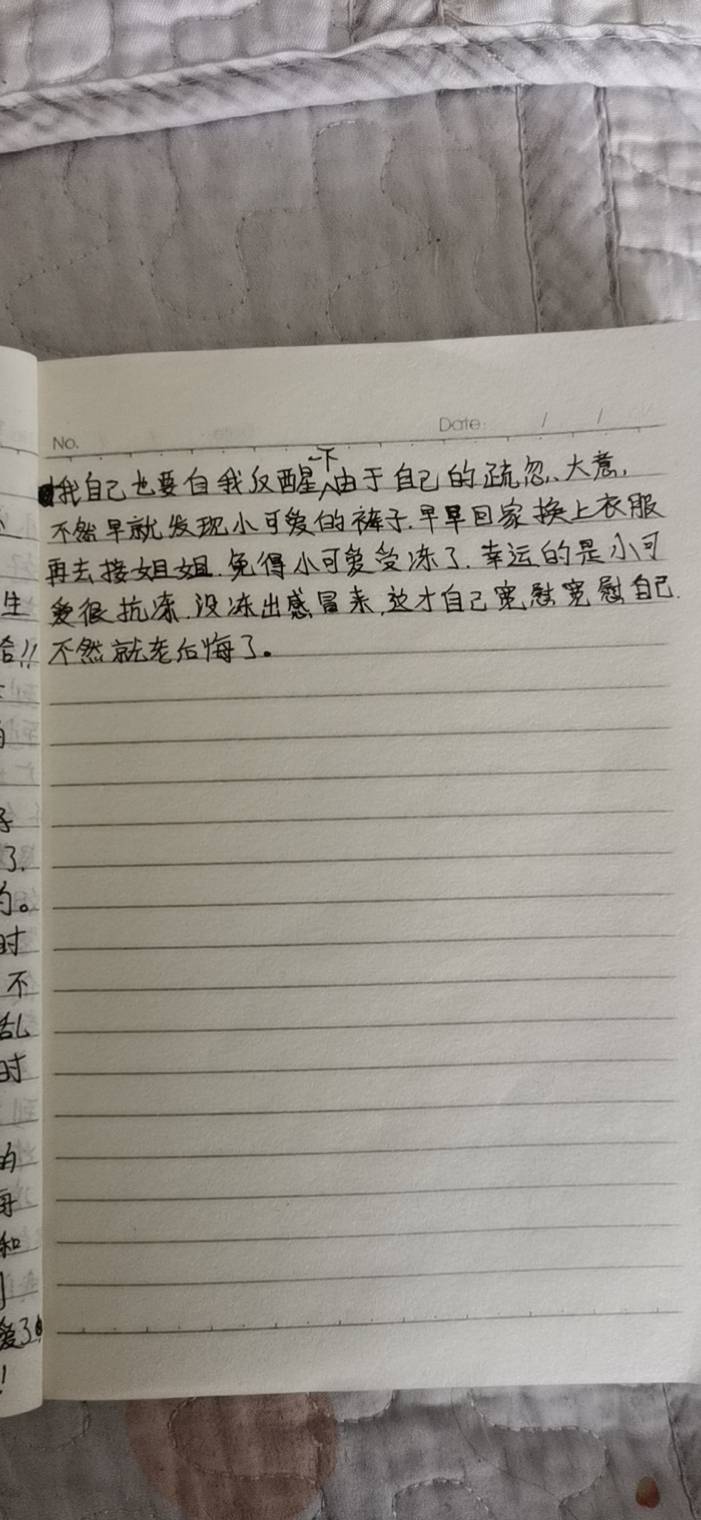 No.
Date: / /
我自己也要自我反醒一下由于自己的疏忽、大意,
不然早就发现小可爱的裤子.早早回家换上衣服
再去接姐姐.免得小可爱受冻了.幸运的是小可
爱很抗冻.没冻出感冒来,这才自己宽慰宽慰自己.
不然就老后悔了。
生
!!
了.
的。
时
不
乱
时
的
和
爱了
!